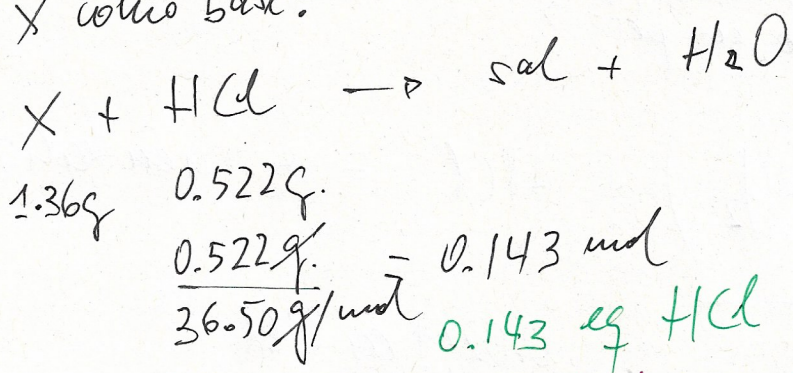 X como base.
X + HCl → sal + H2O
1.36g 0.522g.
0.522g. = 0.143 mol
36.50g/mol 0.143 eq HCl